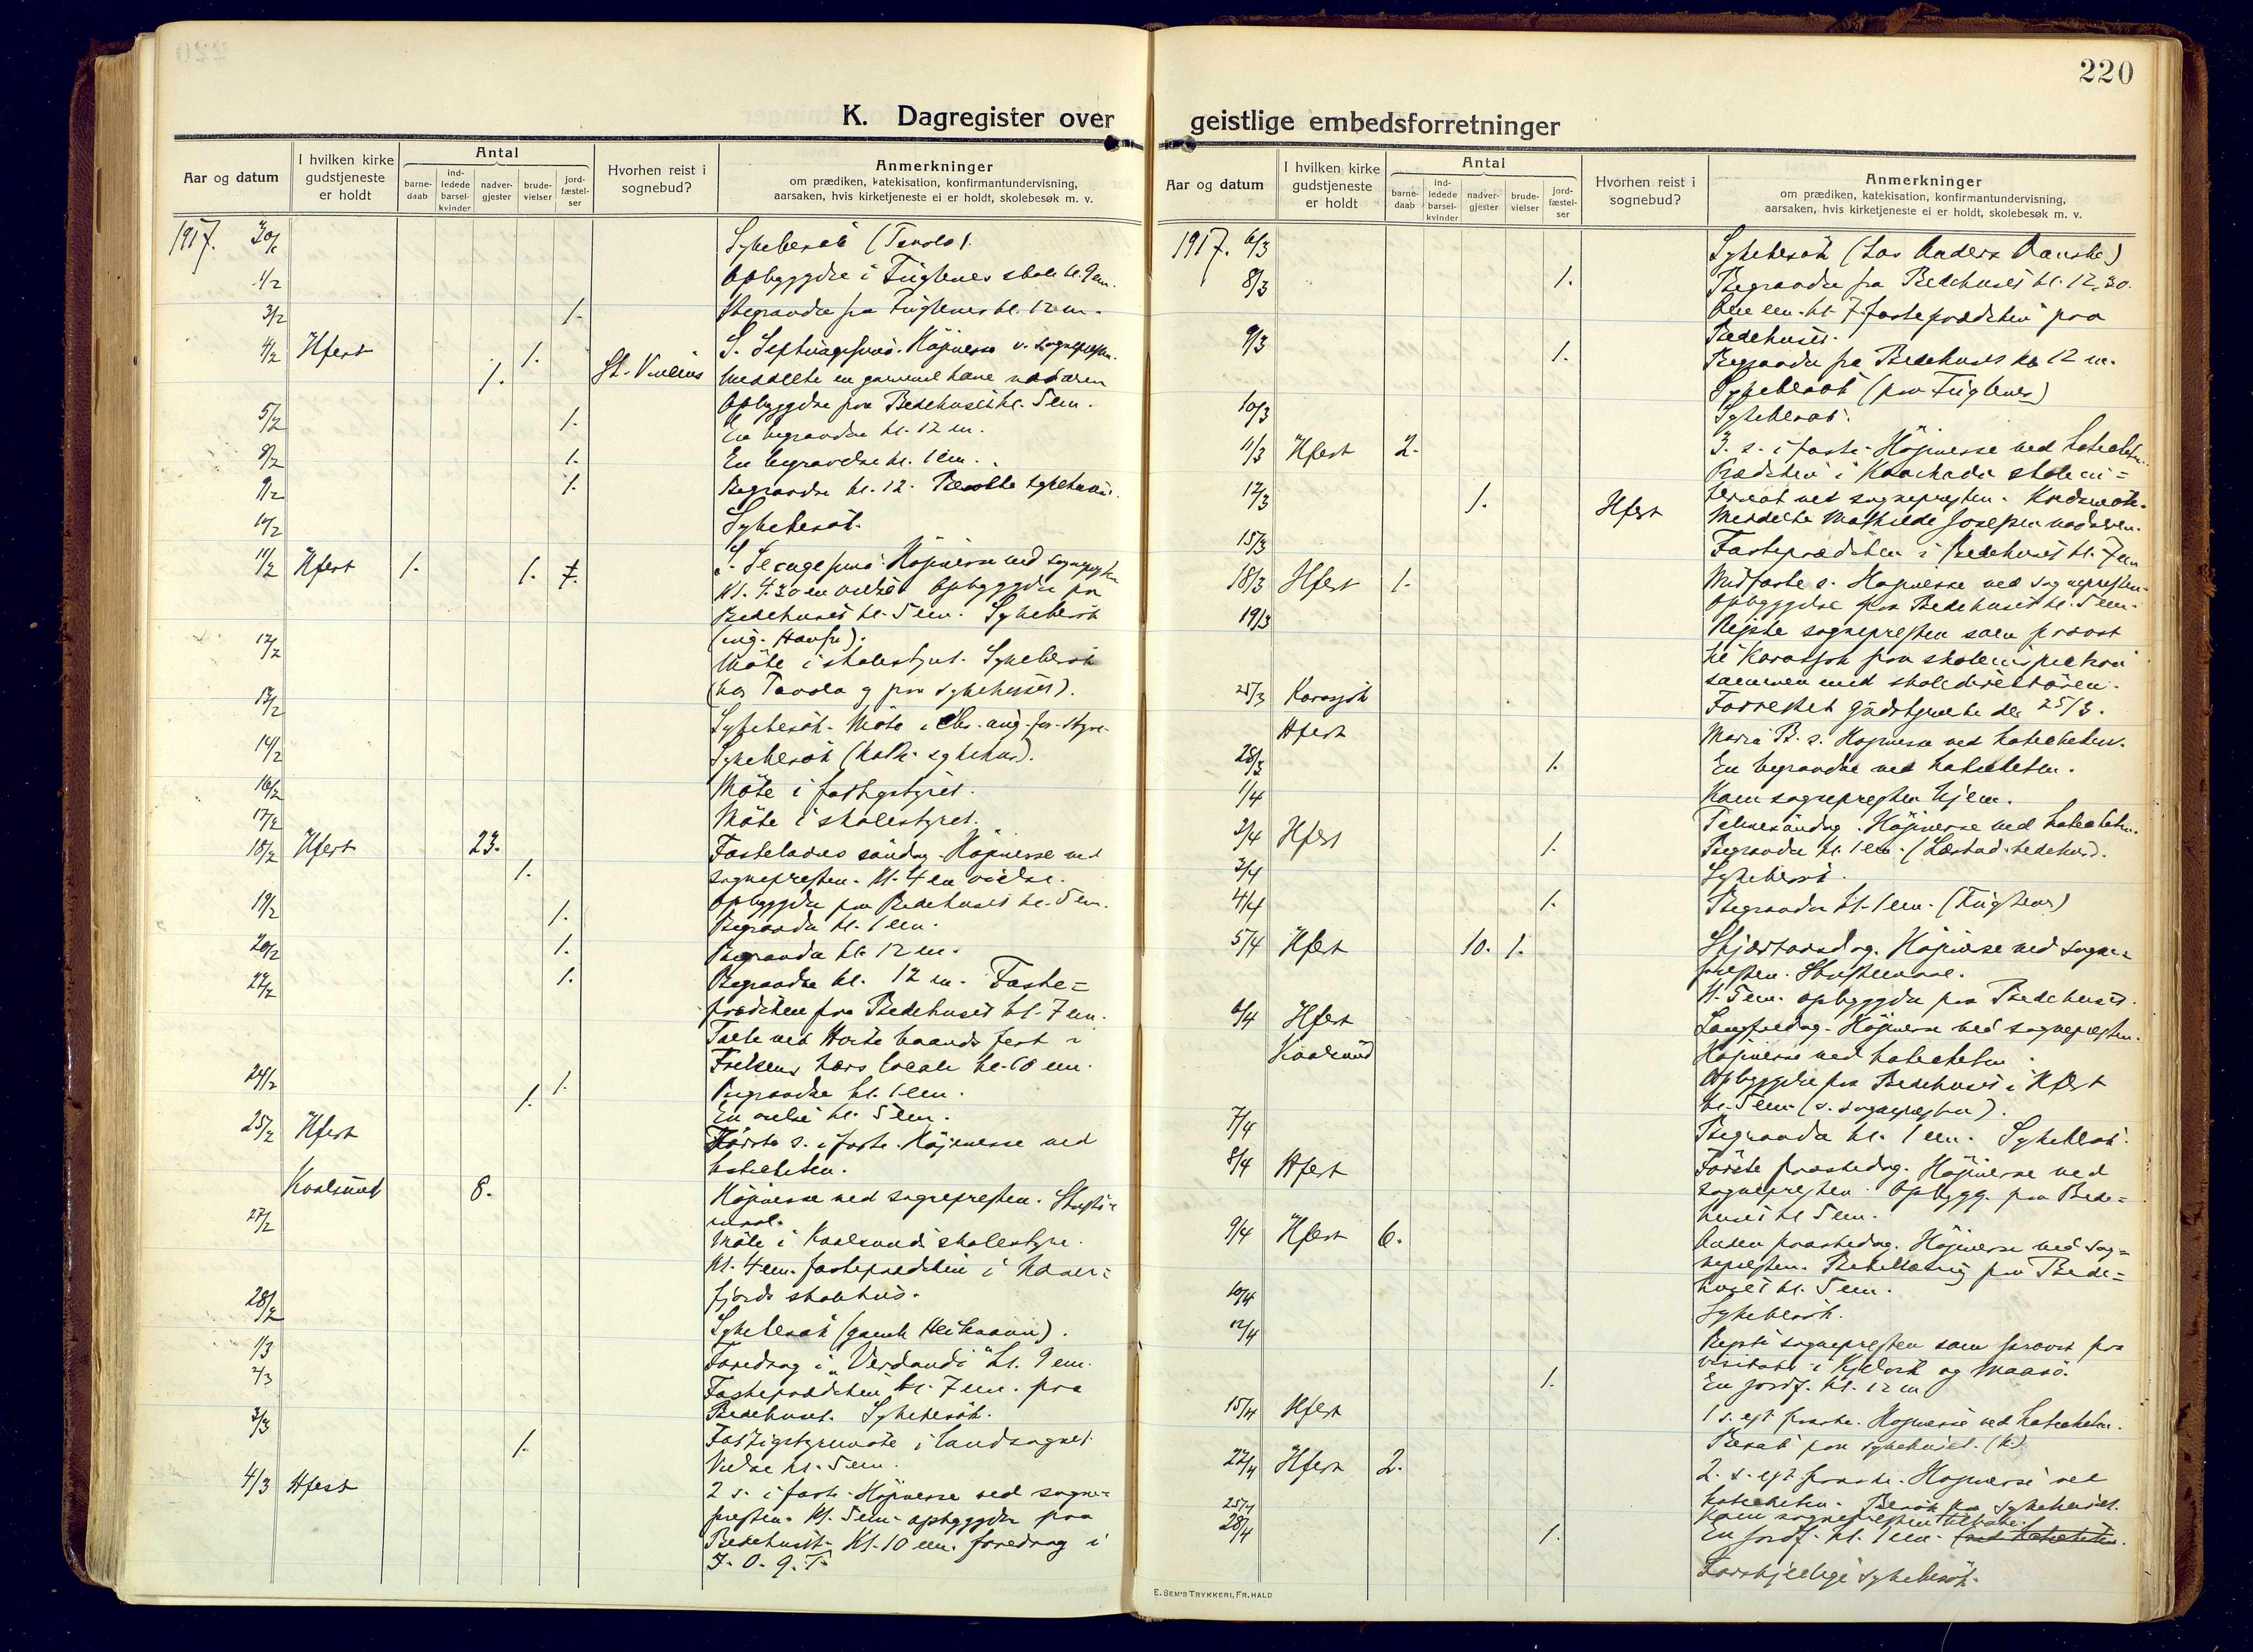 220
K. Dagregister over geistlige embedsforretninger
Aar og datum
I hvilken kirke gudstjeneste er holdt
Antal
barne-daab
ind-ledede barsel-kvinder
nadver-gjester
brude-vielser
jord-fæstel-ser
Hvorhen reist i sognebud?
Anmerkninger
om prædiken, katekisation, konfirmantundervisning,
aarsaken, hvis kirketjeneste ei er holdt, skolebesøk m. v.
1917. 30/1 Sykebesøk
1/2 Opbyggelse i Fuglenes skole kl. 9 em.
3/2 1. Begravelse fra Fuglenes kl. 12 m.
4/2 Hfest 1. S. Septuagesima. Höjmesse v. sognepresten.
1. Meddelte en gammel kone nadveren
Opbyggelse paa Bedehuset kl. 5 em.
5/2 1. En begravelse kl. 12 m.
8/2 1. En begravelse kl. 1 em.
9/2 1. Begravelse kl. 12. Besøkte sykehuset.
10/2 Sykebesøk.
11/2 Hfest 1. 1. S. Sexagesima. Höjmesse ved sognepresten
Kl. 4.30 em vielse. Opbyggelse paa
Bedehuset kl. 5 em. Sykebesøk
12/2 Möte i skolestyret. Sykebesøk
(hos Tavola og paa sykehuset).
13/2 Sykebesøk. Möte i Chr. ung. for. styre.
14/2 Sykebesøk (kath. sykehus).
16/2 Möte i fattigstyret.
17/2 Möte i skolestyret.
18/2 Hfest 23. Fastelavns söndag. Höjmesse ved
1. sognepresten. Kl. 4 em vielse.
Opbyggelse paa Bedehuset kl. 5 em.
19/2 1. Begravelse kl. 1 em.
20/2 1. Begravelse kl. 12 m.
22/2 1. Begravelse kl. 12 m. Faste=
prædiken paa Bedehuset kl. 7 em.
Tale ved Hvite baands fest i
Frelsens hærs locale kl. 10 em.
24/2 1. Begravelse kl. 1 em.
1. En vielse kl. 5 em.
25/2 Hfest Förste s. i faste. Höjmesse ved
katecheten.
Kvalsund 8. Höjmesse ved sognepresten. Skrifte-
maal.
27/2 Möte i Kvalsunds skolestyre.
Kl. 4 em. fasteprædiken i
fjords skolehus.
28/2 Sykebesøk
1/3 Foredrag i „Verdandi" kl. 9 em.
2/3 Fasteprædiken kl. 7 em. paa
Bedehuset. Sykebesøk.
3/3 Fattigstyremøte i landsognet.
1. Vielse kl. 5 em.
4/3 Hfest 2 s. i faste. Höjmesse ved sogne=
presten. Kl. 5 em. opbyggelse paa
Bedehuset. Kl. 10 em. foredrag i
I. O. G. T.
1917. 6/3 Sykebesøk (Lars Anders Danske)
8/3 1. Begravelse fra Bedehuset kl. 12,30.
kl. 7 fasteprædiken paa
Bedehuset.
9/3 1. Begravelse fra Bedehuset kl. 12 m.
Sykebesøk (paa Fuglenes)
10/3 Sykebesøk.
11/3 Hfest 2. 3. s. i faste. Höjmesse ved katecheten.
Prædiken i skolein=
ternat ved sognepresten. Kredsmöte.
12/3 1. Hfest Meddelte Mathilde Josefsen nadveren.
15/3 Fasteprædiken i Bedehuset kl. 7 em
18/3 Hfest 1. Midfaste s. Höjmesse ved sognepresten.
Opbyggelse paa Bedehuset kl. 5 em.
19/3 Rejste sognepresten som provst
til Karasjok paa skoleinspektion
sammen med skoledirektören.
25/3 Karasjok Forrettet gudstjeneste der 25/3.
Hfest Mariæ B. s. Höjmesse ved katecheten.
28/3 1. En begravelse ved katecheten.
1/4 Kom sognepresten hjem.
2/4 Hfest Palmesöndag. Höjmesse ved katecheten.
1. Begravelse kl. 1 em. (Læstad. bedehus).
3/4 Sykebesøk.
4/4 1. Begravelse kl. 1 em. (Fuglenes)
5/4 Hfest 10. 1. Skjærtorsdag. Höjmesse ved sogne=
presten. Skriftemaal.
Kl. 5 em. opbyggelse paa Bedehuset.
6/4 Hfest Langfredag. Höjmesse ved sognepresten.
Kvalsund Höjmesse ved katecheten.
Opbyggelse paa Bedehuset i Hfest
kl. 5 em. (v. sognepresten).
7/4 Begravelse kl. 1 em. Sykebesøk.
8/4 Hfest Förste paaskedag. Höjmesse ved
sognepresten. Opbygg. paa Bede=
huset kl 5 em.
9/4 Hfest 6. Anden paaskedag. Höjmesse ved sog=
nepresten. Bibellæsning paa Bede=
huset kl. 5 em.
10/4 Sykebesøk.
12/4 Rejste sognepresten som provst paa
visitats i Kjelvik og Maasö.
1. En jordf. kl. 12 m
15/4 Hfest 1 s. eft. paaske. Höjmesse ved katecheten.
Besøk paa sykehuset. (K.)
22/4 Hfest 2. 2. s. eft. paaske. Höjmesse ved
katecheten. Besøk paa sykehuset.
25/4 Kom sognepresten tilbake.
28/4 1. En jordf. kl. 1 em. (ved katecheten).
Forskjellige sykebesøk.
E. SEM'S TRYKKERI, FR. HALD